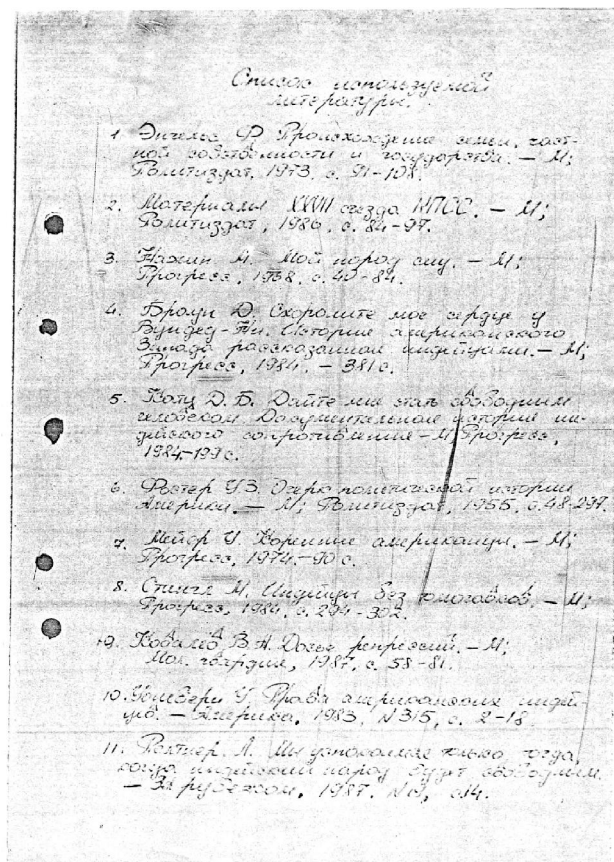 Список используемой
литературы.
1. Энгельс Ф Происхождение семьи, част-
ной собственности и государства. – М;
Политиздат, 1973, с. 91-108.
2. Материалы XXVII съезда КПСС. – М;
Политиздат, 1986, с. 84-97.
3. М. Мой народ сиу. – М;
Прогресс, 1958, с. 40-84.
4. Браун Д. Схороните мое сердце у
Вундед-Ни. История американского
Запада рассказанная индейцами. – М;
Прогресс, 1984. – 381 с.
5. Катц Д. Б. Дайте мне стать свободным
человеком Документальная история ин-
дейского сопротивления – М, Прогресс,
1984-199 с.
6. Фостер У.З. Очерк политической истории
Америки. – М; Политиздат, 1955, с. 48-297.
7. Мейер У. Коренные американцы. – М;
Прогресс, 1974.-90 с.
8. Стингл М. Индейцы без томагавков. – М;
Прогресс, 1984, с. 294-302.
9. В.А. Досье репрессий. – М;
Мол. гвардия, 1987, с. 58-81.
10. У. Права американских индей-
цев. – Америка, 1983, N 315, с. 2-18.
11. Л. Мы успокоимся только тогда,
когда индейский народ будет свободным.
– За рубежом, 1987. с14.